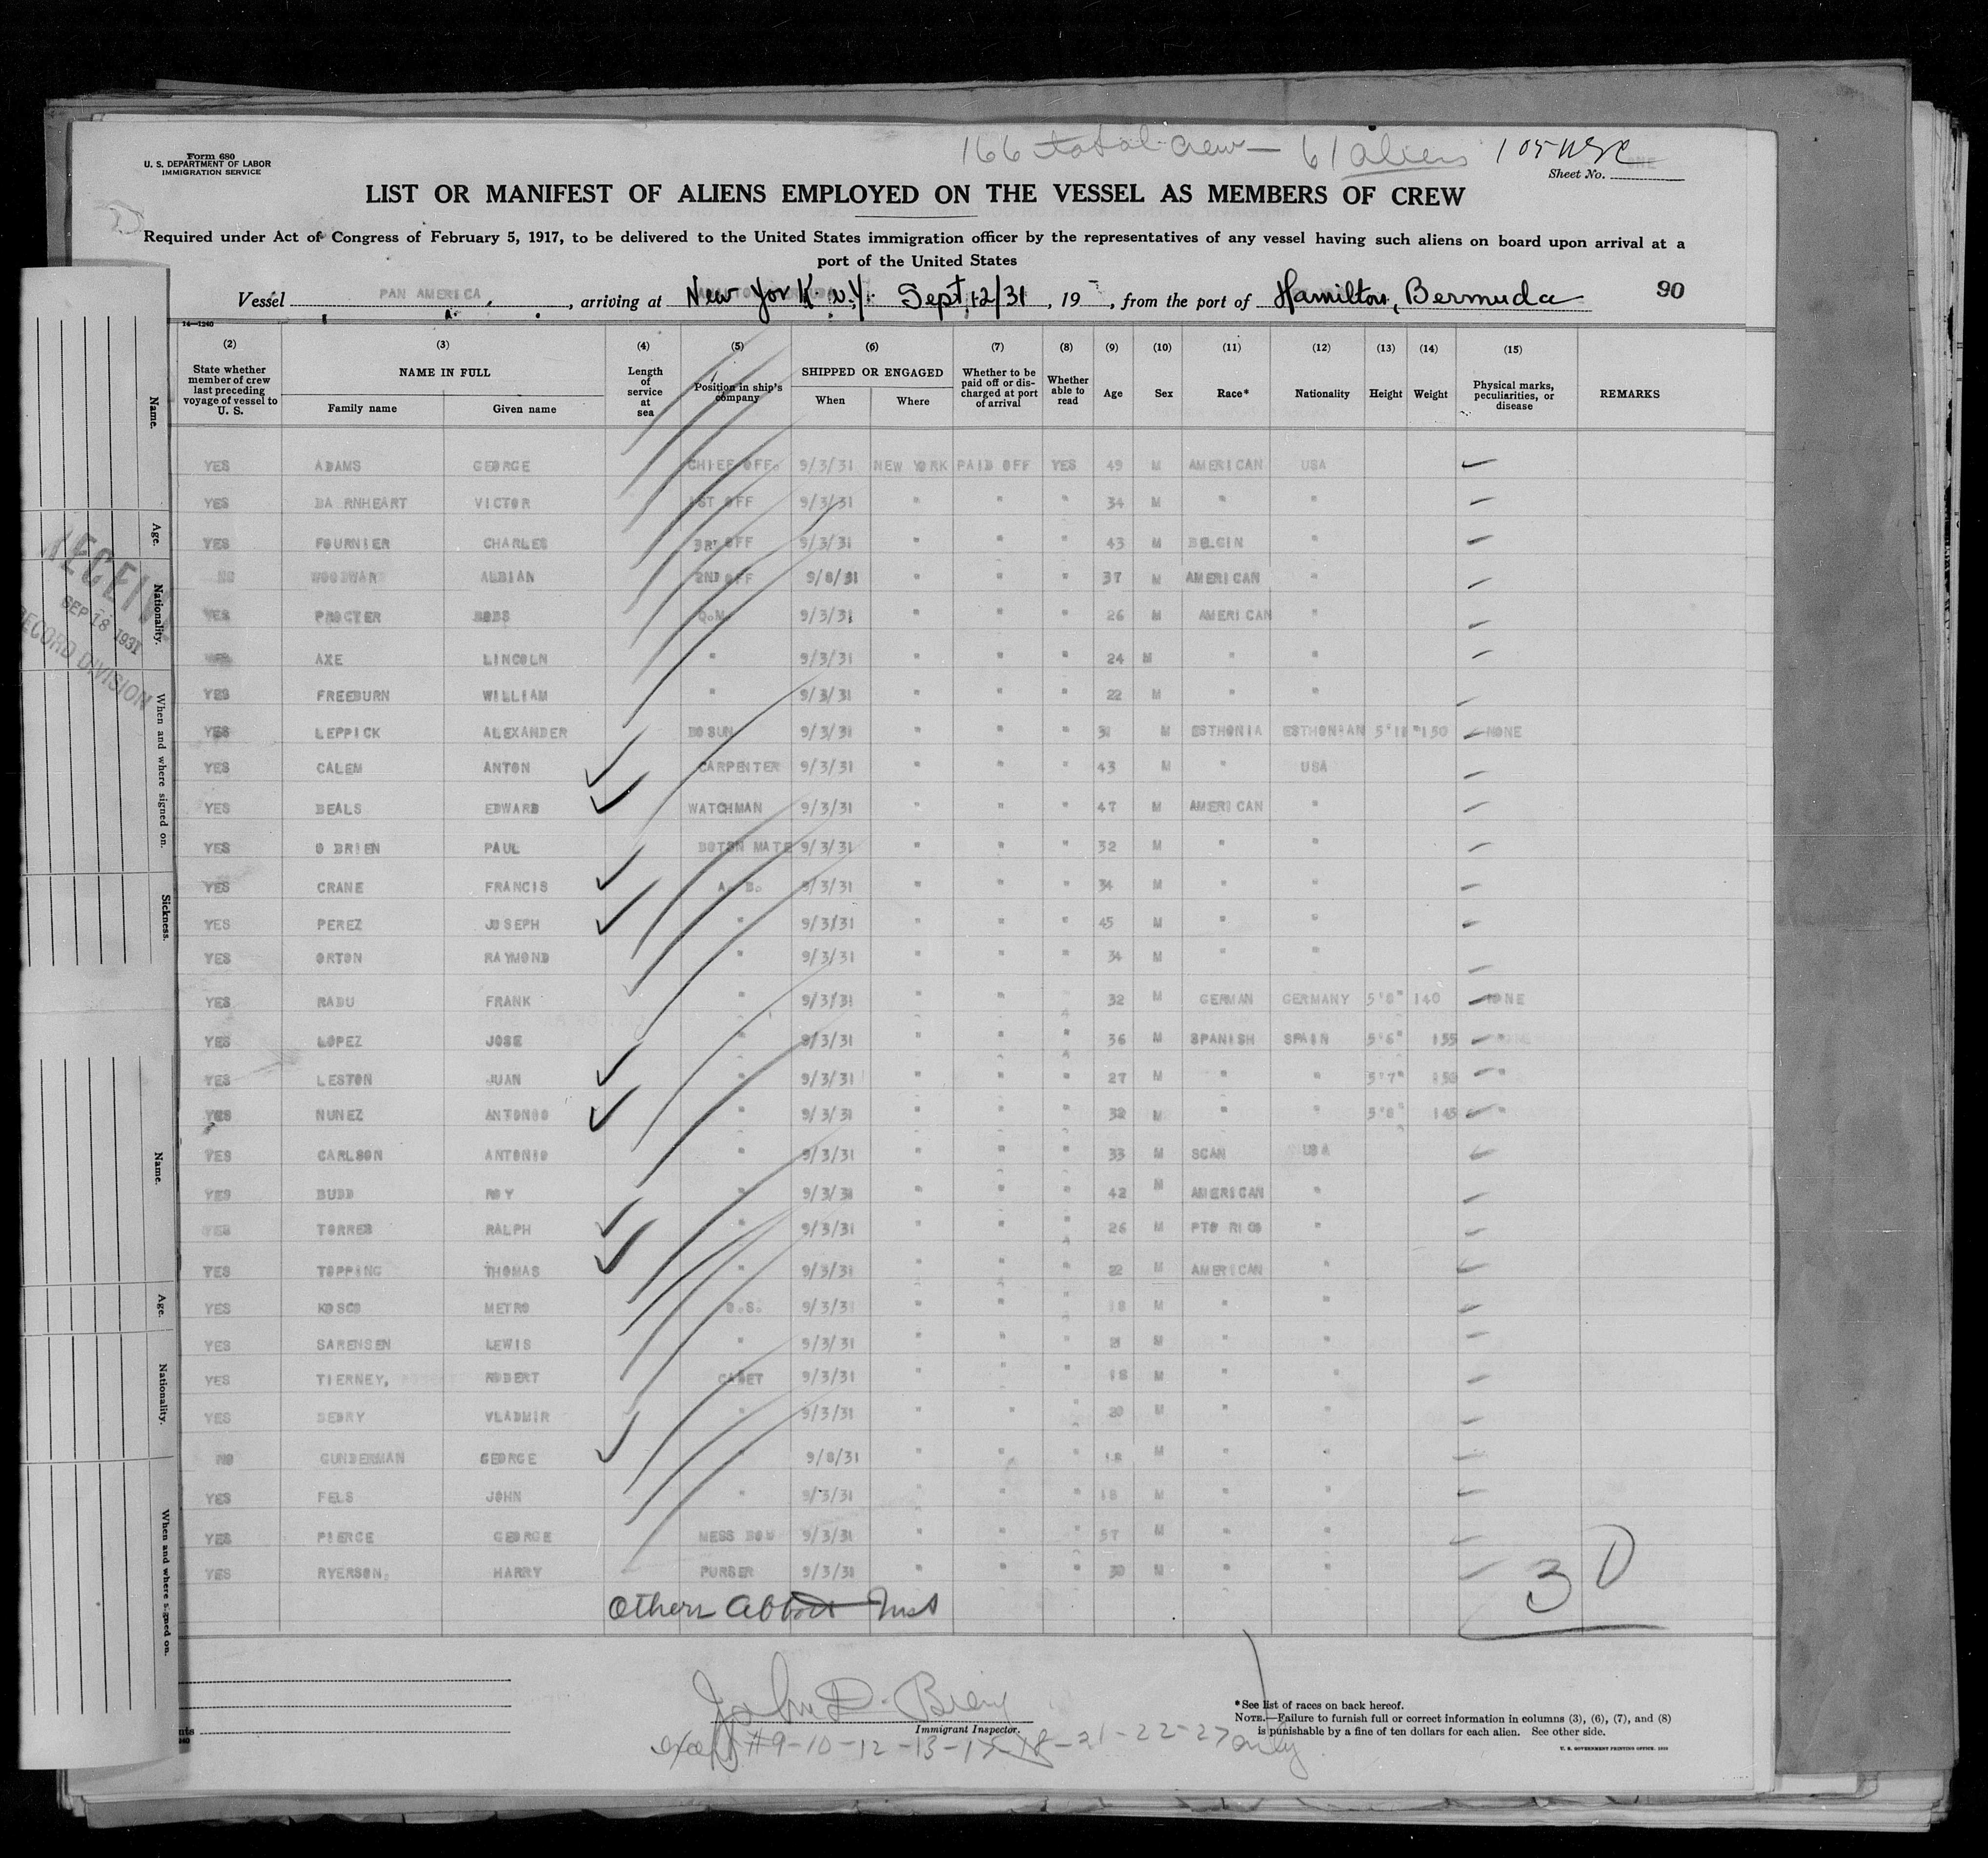 166 total crew — 61 aliens 105 USC
Form 680
U. S. DEPARTMENT OF LABOR
IMMIGRATION SERVICE
Sheet No.
LIST OR MANIFEST OF ALIENS EMPLOYED ON THE VESSEL AS MEMBERS OF CREW
Required under Act of Congress of February 5, 1917, to be delivered to the United States immigration officer by the representatives of any vessel having such aliens on board upon arrival at a
port of the United States
Vessel PAN AMERICA, arriving at New York. N.Y. Sept. 12/31, 19 , from the port of Hamilton, Bermuda 90
14—1240
(2) (3) (4) (5) (6) (7) (8) (9) (10) (11) (12) (13) (14) (15)
State whether member of crew last preceding voyage of vessel to U. S.
NAME IN FULL
Family name Given name
Length of service at sea
Position in ship's company
SHIPPED OR ENGAGED
When Where
Whether to be paid off or discharged at port of arrival
Whether able to read
Age Sex Race* Nationality Height Weight
Physical marks, peculiarities, or disease
REMARKS
YES ADAMS GEORGE CHIEF OFF. 9/3/31 NEW YORK PAID OFF YES 49 M AMERICAN USA
YES BARNHEART VICTOR 1ST OFF 9/3/31 " " " 34 M " "
YES FOURNIER CHARLES 3RD OFF 9/3/31 " " " 43 M BELGIN "
NO WOODWARD ALBIAN 2ND OFF 9/8/31 " " " 37 M AMERICAN "
YES PROCTER BOBS Q.M. 9/3/31 " " " 26 M AMERICAN "
YES AXE LINCOLN " 9/3/31 " " " 24 M " "
YES FREEBURN WILLIAM " 9/3/31 " " " 22 M " "
YES LEPPICK ALEXANDER BOSUN 9/3/31 " " " 31 M ESTHONIA ESTHONIAN 5'11" 150 NONE
YES CALEM ANTON CARPENTER 9/3/31 " " " 43 M " USA
YES BEALS EDWARD WATCHMAN 9/3/31 " " " 47 M AMERICAN "
YES O BRIEN PAUL BOTSN MATE 9/3/31 " " " 32 M " "
YES CRANE FRANCIS A. B. 9/3/31 " " " 34 M " "
YES PEREZ JOSEPH " 9/3/31 " " " 45 M " "
YES ORTON RAYMOND " 9/3/31 " " " 34 M " "
YES RADU FRANK " 9/3/31 " " " 32 M GERMAN GERMANY 5'8" 140 NONE
YES LOPEZ JOSE " 9/3/31 " " " 36 M SPANISH SPAIN 5'6" 155
YES LESTON JUAN " 9/3/31 " " " 27 M " " 5'7" 150 "
YES NUNEZ ANTONGO " 9/3/31 " " " 32 M " " 5'8" 145 "
YES CARLSON ANTONIO " 9/3/31 " " " 33 M SCAN USA
YES BUDD ROY " 9/3/31 " " " 42 M AMERICAN "
YES TORRES RALPH " 9/3/31 " " " 26 M PTO RICO "
YES TOPPING THOMAS " 9/3/31 " " " 22 M AMERICAN "
YES KOSCO METRO O.S. 9/3/31 " " " 18 M " "
YES SARENSEN LEWIS " 9/3/31 " " " 21 M " "
YES TIERNEY, ROBERT CADET 9/3/31 " " " 18 M " "
YES BEDRY VLADMIR " 9/3/31 " " " 20 M " "
NO GUNDERMAN GEORGE " 9/8/31 " " " 18 M " "
YES FELS JOHN " 9/3/31 " " " 18 M " "
YES PIERCE GEORGE MESS BOY 9/3/31 " " " 57 M " "
YES RYERSON, HARRY PURSER 9/3/31 " " " 30 M " "
30
Immigrant Inspector.
except #9-10-12-13-17-18-21-22-27 only
*See list of races on back hereof.
NOTE.—Failure to furnish full or correct information in columns (3), (6), (7), and (8)
is punishable by a fine of ten dollars for each alien. See other side.
U. S. GOVERNMENT PRINTING OFFICE
Name.
Age.
Nationality.
When and where signed on.
Sickness.
Name.
Age.
Nationality.
When and where signed on.
SEP 18 1931
RECORD DIVISION